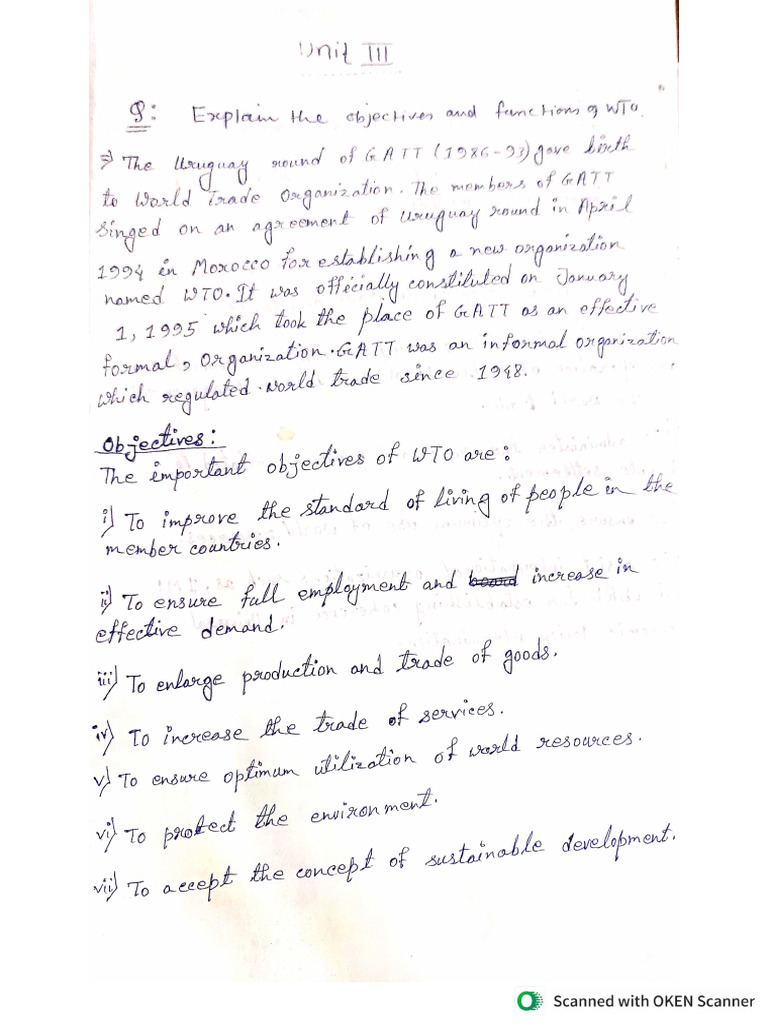 Unit III
Q: Explain the objectives and functions of WTO.
⇒ The Uruguay round of GATT (1986-93) gave birth
to World Trade Organization. The members of GATT
singed on an agreement of Uruguay round in April
1994 in Morocco for establishing a new organization
named WTO. It was officially constituted on January
1, 1995 which took the place of GATT as an effective
formal, organization. GATT was an informal organization
which regulated world trade since 1948.
Objectives:
The important objectives of WTO are:
i) To improve the standard of living of people in the
member countries.
ii) To ensure full employment and increase in
effective demand.
iii) To enlarge production and trade of goods.
iv) To increase the trade of services.
v) To ensure optimum utilization of world resources.
vi) To protect the environment.
vii) To accept the concept of sustainable development.
Scanned with OKEN Scanner